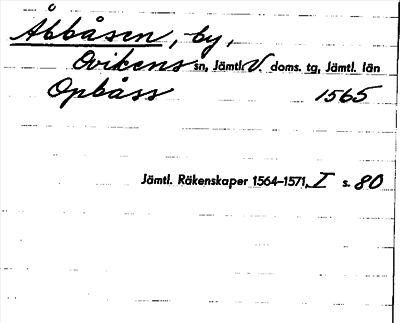 Åbbåsen, by,
Ovikens sn, Jämtl. V. doms. tg, Jämtl. län
Opbåss 1565
Jämtl. Räkenskaper 1564–1571, I s. 80